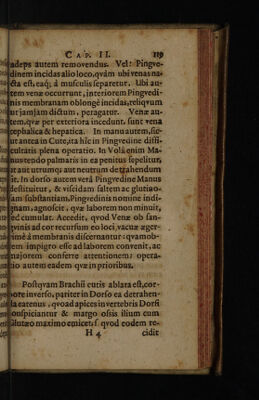 CAP. II. 119
adeps autem removendus. Vel: Pingve-
dinem incidas alio loco, quàm ubi venas na-
cta est, eaq; à musculis separetur. Ubi au-
tem venæ occurrunt, interiorem Pingvedi-
nis membranam oblongè incidas, reliqvum
ut jamjam dictum, peragatur. Venæ au-
tem, qvæ per exteriora incedunt, sunt vena
cephalica & hepatica. In manu autem, sic-
ut antea in Cute, ita hîc in Pingvedine diffi-
cultatis plena operatio. In Volâ enim Ma-
nus tendo palmaris in ea penitus sepelitur,
ut aut utrumq; aut neutrum detrahendum
sit. In dorso autem verâ Pingvedine Manus
destituitur, & viscidam saltem ac glutino-
sam substantiam, Pingvedinis nomine indi-
gnam, agnoscit, qvæ laborem non minuit,
sed cumulat. Accedit, qvod Venæ ob san-
gvinis ad cor recursum eo loci, vacuæ æger-
rimè à membranis discernantur: qvamob-
rem impigro esse ad laborem convenit, ac
majorem conferre attentionem; opera-
tio autem eadem qvæ in prioribus.
Postqvam Brachii cutis ablata est, cor-
pore inverso, pariter in Dorso ea detrahen-
da eatenus, qvoad apices in vertebris Dorsi
conspiciantur & margo ossis ilium cum
glutæo maximo emicet; qvod eodem re-
H 4 cidit